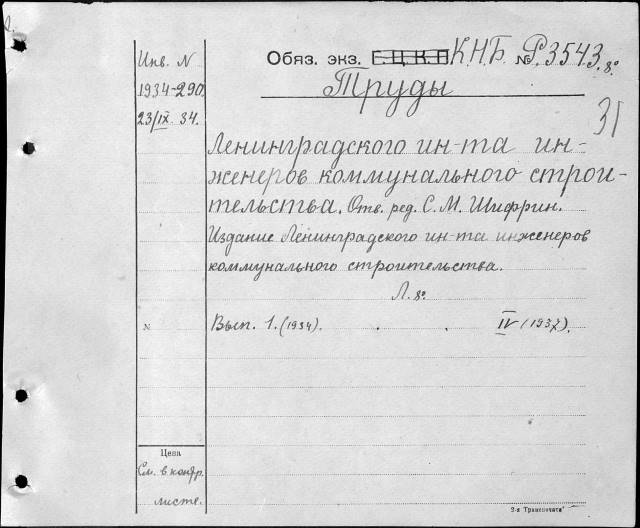 Инв. N
1934-290.
23/IX 34.
Обяз. экз. Г.Ц.К.П К.Н.Б. № Р.3543. 8º
Труды
31
Ленинградского ин-та ин-
женеров коммунального строи-
тельства. Отв. ред. С. М. Шифрин.
Издание Ленинградского ин-та инженеров
коммунального строительства.
Л. 8º
N Вып. 1. (1934). IV (1937).
Цена
См. в контр.
листе.
2-я Транспечати